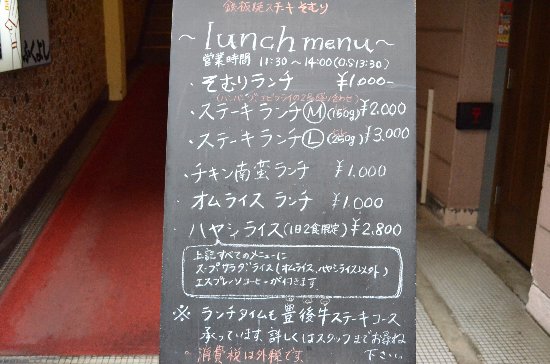 鉄板焼ステーキ そむり
～lunch menu～
営業時間 11:30～14:00(OS13:30)
・そむりランチ ¥1,000-
(ハンバーグ、エビフライの2色盛り合わせ)
・ステーキランチ Ⓜ(150g) ¥2,000
・ステーキ ランチ Ⓛ(250g) ¥3,000
・チキン南蛮ランチ ¥1,000
・オムライス ランチ ¥1,000
・ハヤシライス(1日2食限定) ¥2,800
上記すべてのメニューに
スープ,サラダ,ライス(オムライス,ハヤシライス以外)
エスプレッソコーヒーが付きます。
※ランチタイムも豊後牛ステーキコース
承っています。詳しくはスタッフまでお尋ね
下さい。
消費税は外税です。
ふくよし